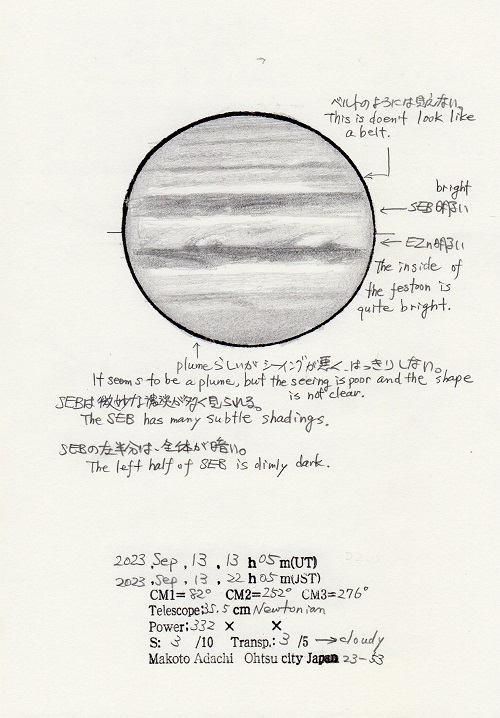 ベルトのようには見えない。
This is doen't look like
a belt.
bright
SEB明るい
EZn明るい
The inside of
the festoon is
quite bright.
plumeらしいがシーイングが悪く、はっきりしない。
It seems to be a plume, but the seeing is poor and the shape
is not clear.
SEBは微妙な濃淡が多く見られる。
The SEB has many subtle shadings.
SEBの左半分は、全体が暗い。
The left half of SEB is dimly dark.
2023, Sep, 13, 13 h 05 m(UT)
2023, Sep, 13, 22 h 05 m(JST)
CM1= 82° CM2= 252° CM3= 276°
Telescope: 35.5 cm Newtonian
Power: 332 × ×
S: 3 /10 Transp.: 3 /5 → cloudy
Makoto Adachi Ohtsu city Japan 23-53